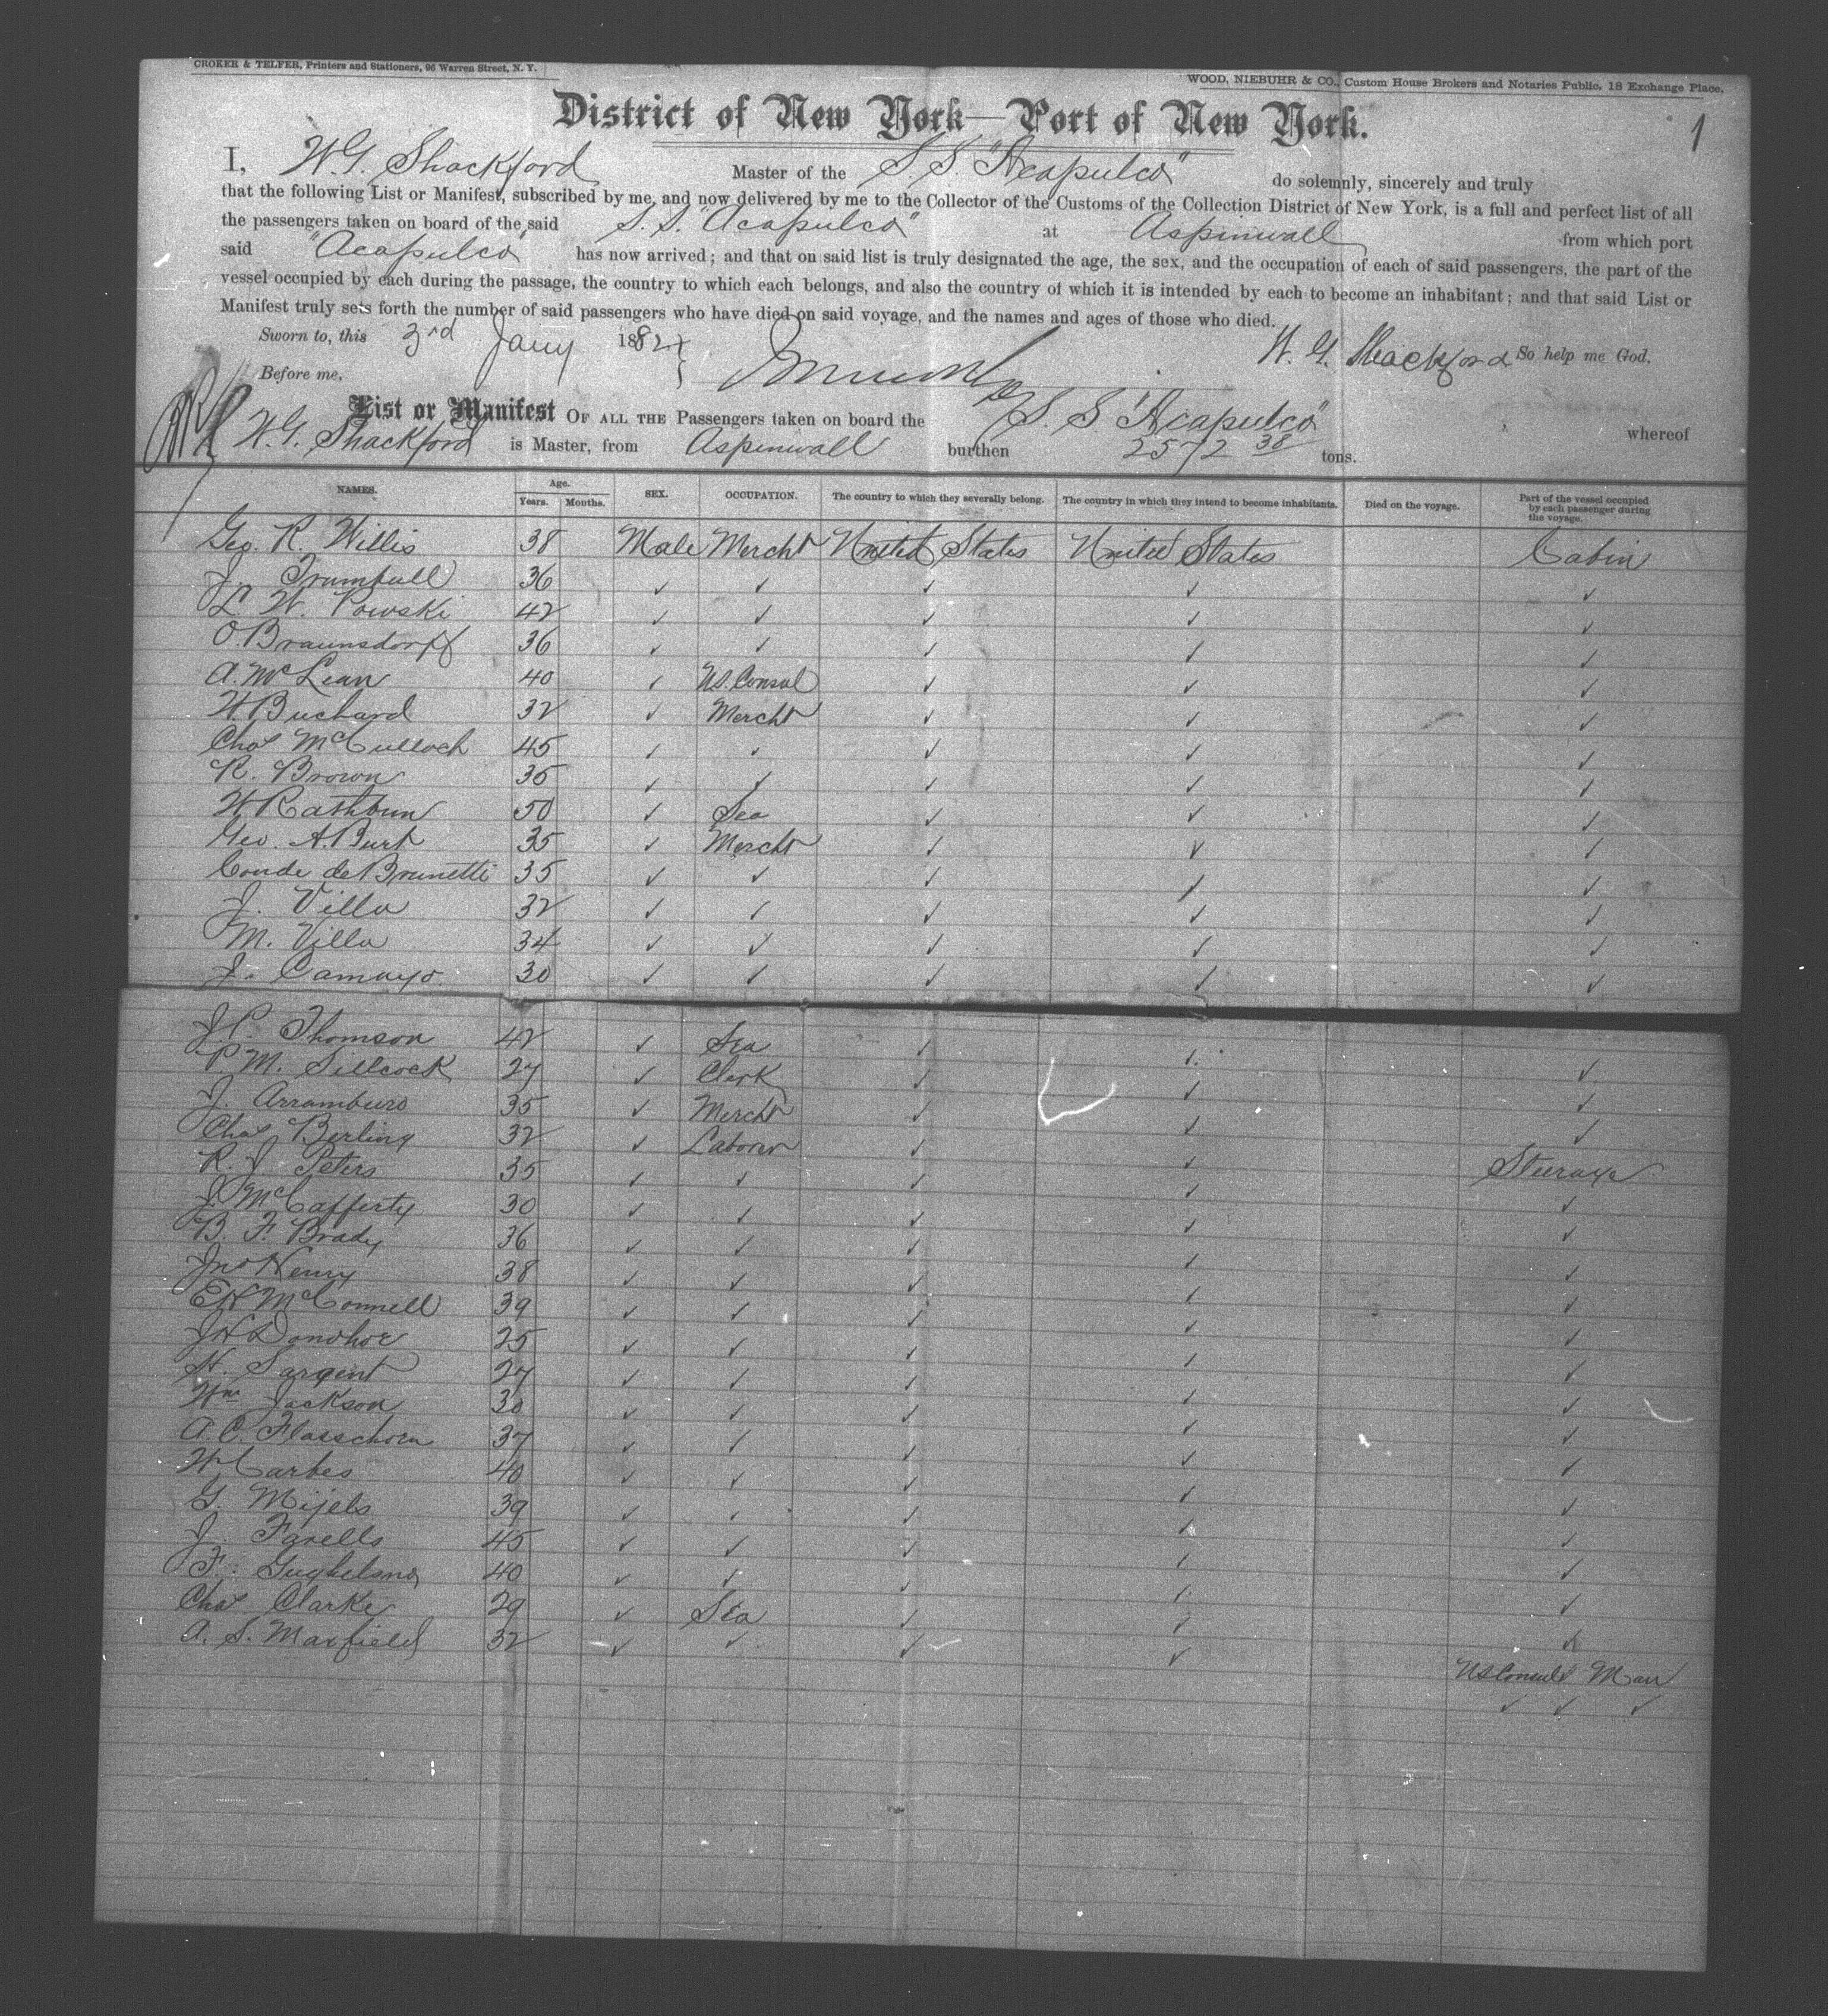 CROKER & TELFER, Printers and Stationers, 96 Warren Street, N. Y.
WOOD, NIEBUHR & CO., Custom House Brokers and Notaries Public, 18 Exchange Place.
District of New York—Port of New York.
1
I, W. G. Shackford Master of the S. S. "Acapulco" do solemnly, sincerely and truly
that the following List or Manifest, subscribed by me, and now delivered by me to the Collector of the Customs of the Collection District of New York, is a full and perfect list of all
the passengers taken on board of the said S. S. "Acapulco" at Aspinwall from which port
said "Acapulco" has now arrived; and that on said list is truly designated the age, the sex, and the occupation of each of said passengers, the part of the
vessel occupied by each during the passage, the country to which each belongs, and also the country of which it is intended by each to become an inhabitant; and that said List or
Manifest truly sets forth the number of said passengers who have died on said voyage, and the names and ages of those who died.
Sworn to, this 3rd Jany 1882 W. G. Shackford So help me God.
Before me,
List or Manifest OF ALL THE Passengers taken on board the S. S "Acapulco" whereof
W. G. Shackford is Master, from Aspinwall burthen 2572 38 tons.
NAMES. Age. Years. Months. SEX. OCCUPATION. The country to which they severally belong. The country in which they intend to become inhabitants. Died on the voyage. Part of the vessel occupied by each passenger during the voyage.
Geo. R. Willis 38 Male Mercht United States United States Cabin
J. Trumbull 36 ✓ ✓ ✓ ✓ ✓
L. W. Powski 42 ✓ ✓ ✓ ✓ ✓
O. Braunsdorff 36 ✓ ✓ ✓ ✓ ✓
A. McLean 40 ✓ US. Consul ✓ ✓ ✓
H. Buchard 32 ✓ Mercht ✓ ✓ ✓
Chas McCulloch 45 ✓ ✓ ✓ ✓ ✓
R. Brown 36 ✓ ✓ ✓ ✓ ✓
W Rathbun 50 ✓ Sea ✓ ✓ ✓
Geo. A. Burt 35 ✓ Mercht ✓ ✓ ✓
Conde de Brunetti 35 ✓ ✓ ✓ ✓ ✓
J. Villa 32 ✓ ✓ ✓ ✓ ✓
M. Villa 34 ✓ ✓ ✓ ✓ ✓
J. Camayo 30 ✓ ✓ ✓ ✓ ✓
J. P. Thomson 42 ✓ Sea ✓ ✓ ✓
P. M. Sillcock 27 ✓ Clerk ✓ ✓ ✓
J. Arramburo 35 ✓ Mercht ✓ ✓ ✓
Chas Berling 32 ✓ Laborer ✓ ✓ Steerage
R. J. Peters 35 ✓ ✓ ✓ ✓ ✓
J. McCafferty 30 ✓ ✓ ✓ ✓ ✓
B. F. Brady 36 ✓ ✓ ✓ ✓ ✓
Jno Henry 38 ✓ ✓ ✓ ✓ ✓
E H McConnell 39 ✓ ✓ ✓ ✓ ✓
J H Donohoe 25 ✓ ✓ ✓ ✓ ✓
H. Sargent 27 ✓ ✓ ✓ ✓ ✓
Wm Jackson 30 ✓ ✓ ✓ ✓ ✓
A. C. Flasschoen 37 ✓ ✓ ✓ ✓ ✓
W Carbes 40 ✓ ✓ ✓ ✓ ✓
G. Mijels 39 ✓ ✓ ✓ ✓ ✓
J. Farells 45 ✓ ✓ ✓ ✓ ✓
F. 40 ✓ ✓ ✓ ✓ ✓
Chas Clarke 29 ✓ Sea ✓ ✓ US Consuls Man
A. S. Maxfield 32 ✓ ✓ ✓ ✓ ✓ ✓ ✓